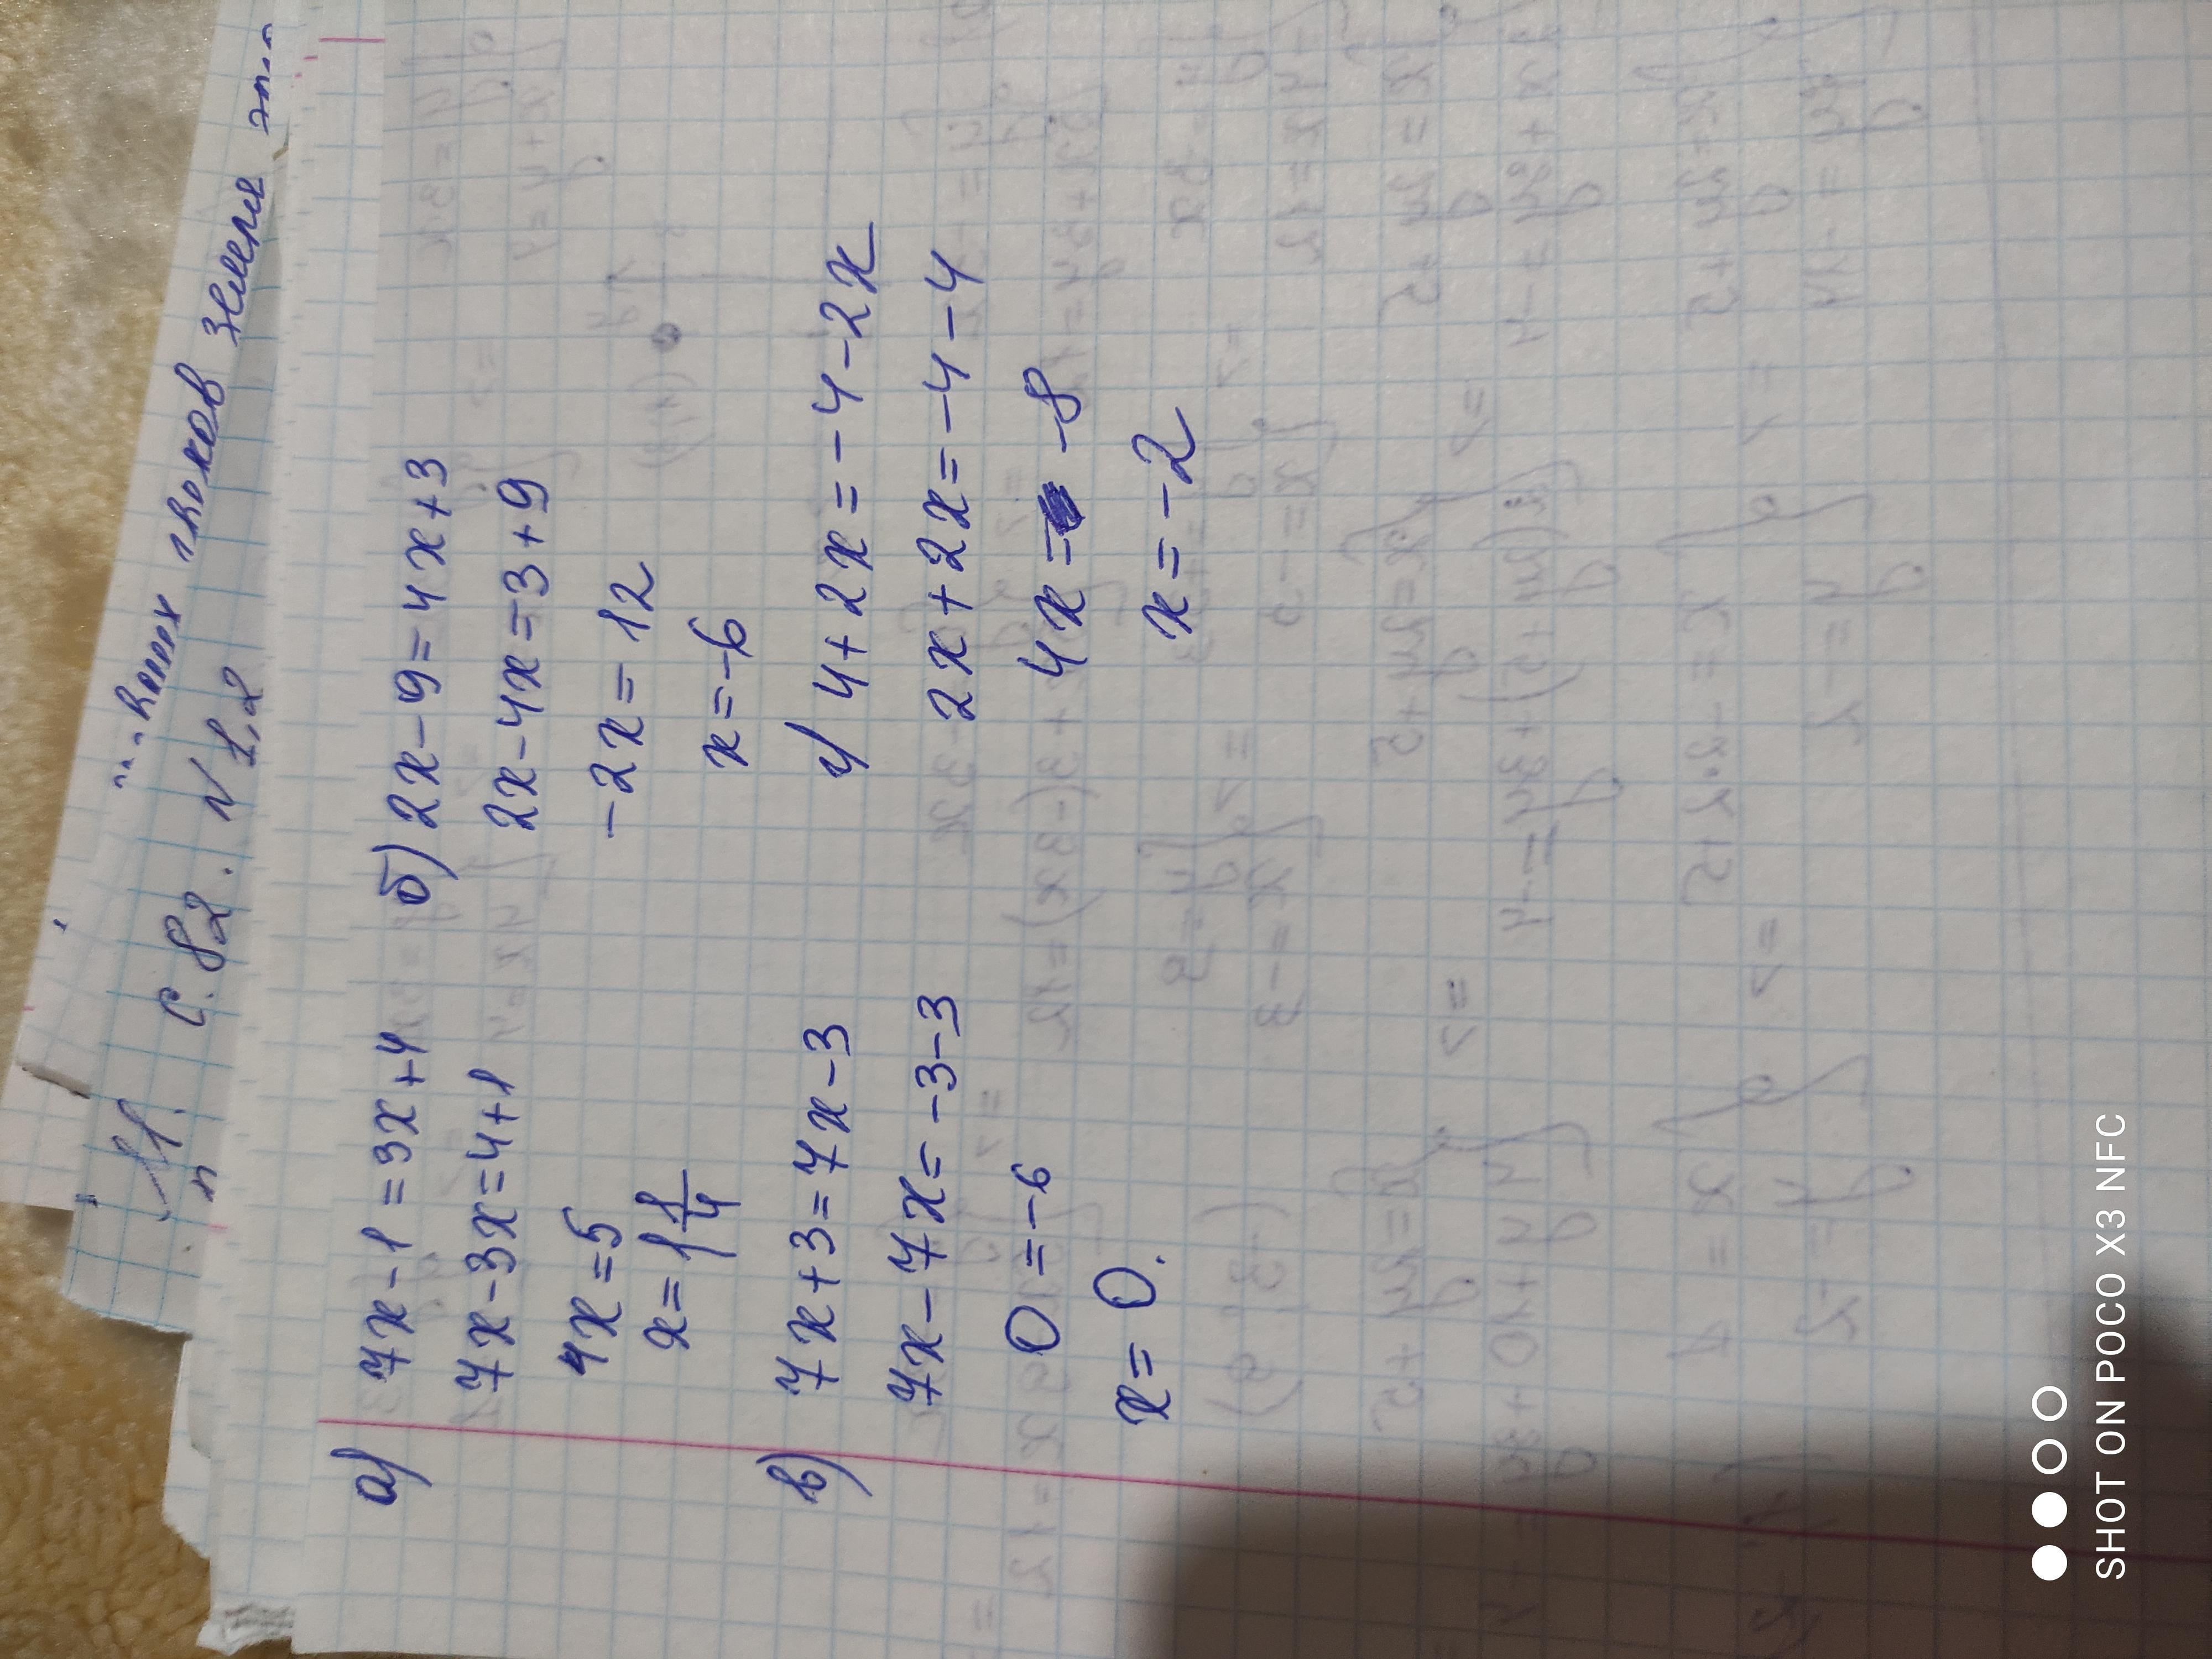 земли
С. 82. N 1,2
а) 7x-1=3x+4
7x-3x=4+1
4x=5
x=1 1/4
б) 2x-9=4x+3
2x-4x=3+9
-2x=12
x=-6
в) 7x+3=7x-3
7x-7x=-3-3
0=-6
x=0.
г) 4+2x=-4-2x
2x+2x=-4-4
4x=-8
x=-2
SHOT ON POCO X3 NFC